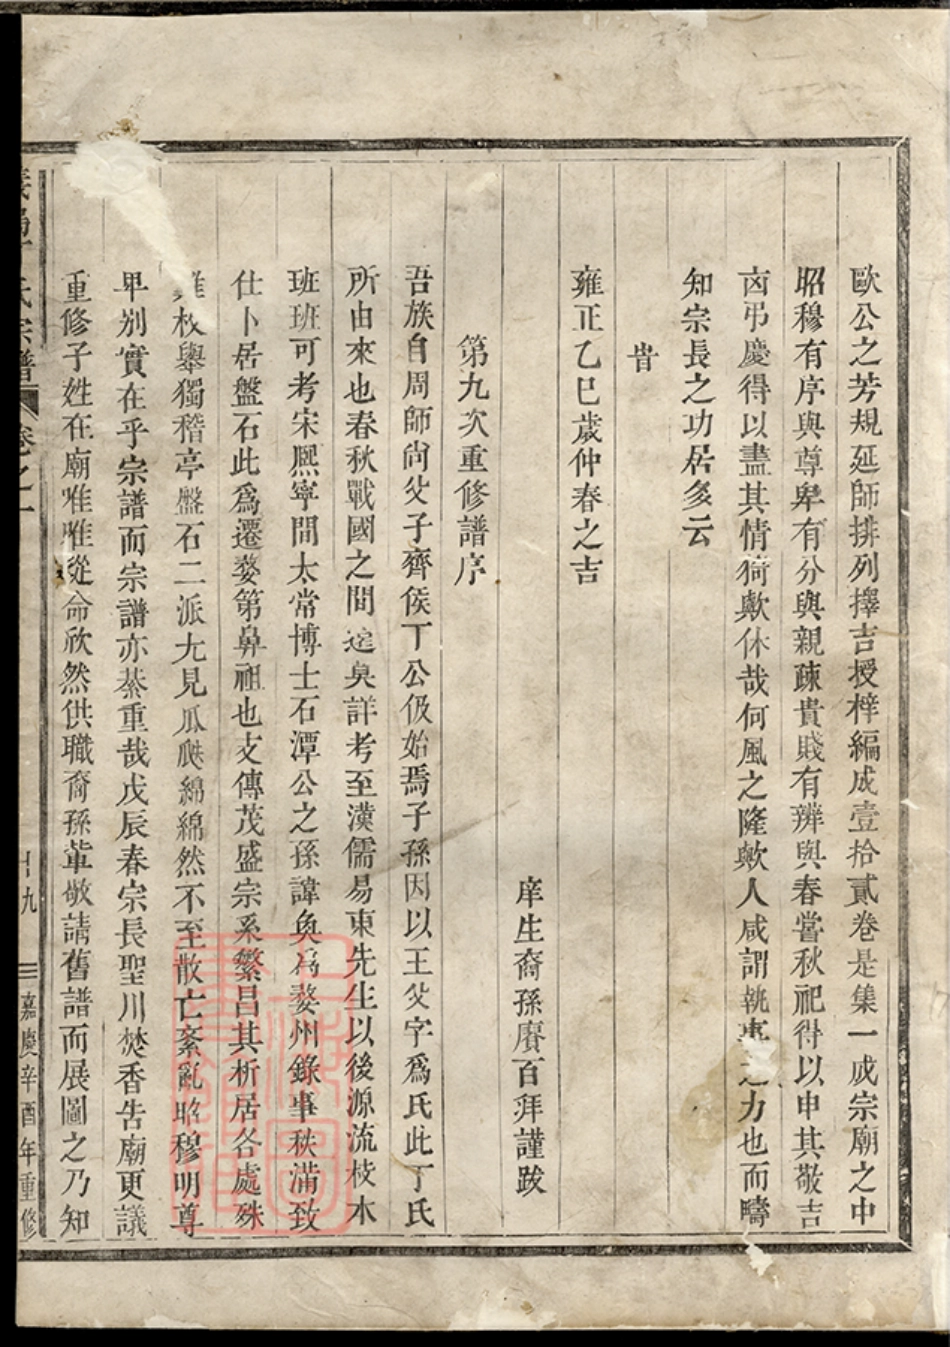 歐公之芳規延師排列擇吉授梓編成壹拾貳卷是集一成宗廟之中
昭穆有序與尊卑有分與親疎貴賤有辨與春嘗秋祀得以申其敬吉
卤弔慶得以盡其情猗歟休哉何風之隆歟人咸謂執事之力也而疇
知宗長之功居多云
旹
雍正乙巳歲仲春之吉
庠生裔孫賡百拜謹跋
第九次重修譜序
吾族自周師尙父子齊侯丁公伋始焉子孫因以王父字爲氏此丁氏
所由來也春秋戰國之間遠矣詳考至漢儒易東先生以後源流枝木
班班可考宋熈寧間太常博士石潭公之孫諱奐爲婺州錄事秩滿致
仕卜居盤石此爲遷婺第鼻祖也支傳茂盛宗系繁昌其析居各處殊
難枚舉獨稽亭盤石二派尢見瓜瓞綿綿然不至散亡紊亂昭穆明尊
卑别實在乎宗譜而宗譜亦綦重哉戊辰春宗長聖川焚香告廟更議
重修子姓在廟唯唯從命欣然供職裔孫軰敬請舊譜而展圖之乃知
氏宗譜 卷之一 九 嘉慶辛酉年重修